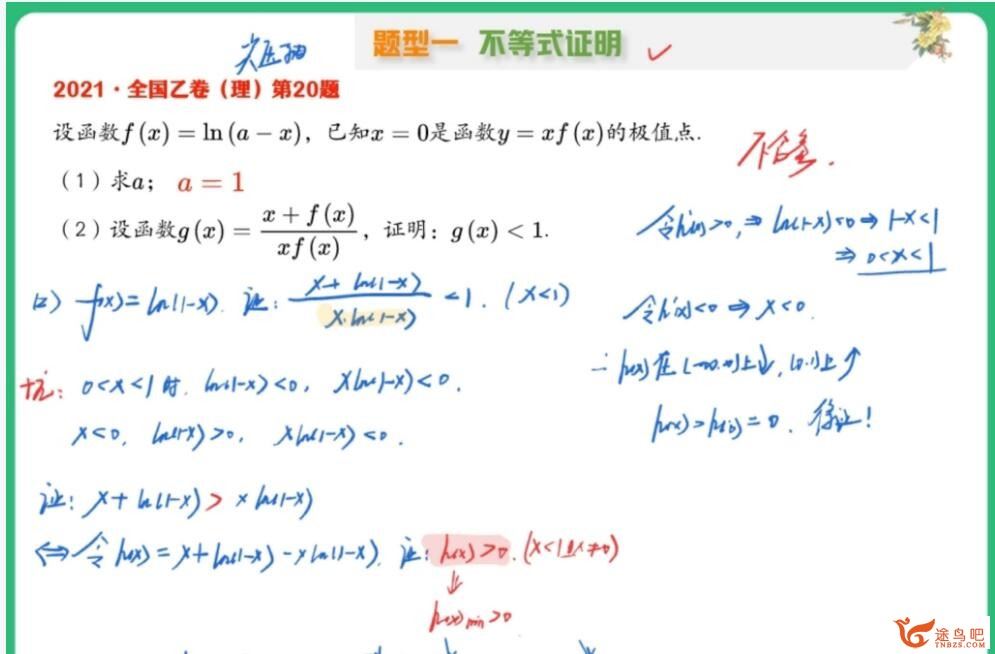 题型一 不等式证明 ✓
2021·全国乙卷（理）第20题
设函数f(x)=ln(a−x)，已知x=0是函数y=xf(x)的极值点.
（1）求a； a=1
（2）设函数g(x)=\frac{x+f(x)}{xf(x)}，证明：g(x)<1.
(2) f(x)=ln(1-x). 证：\frac{x+ln(1-x)}{x·ln(1-x)}<1. (x<1)
坑：0<x<1时, ln(1-x)<0, xln(1-x)<0.
x<0, ln(1-x)>0, xln(1-x)<0.
证：x+ln(1-x)>xln(1-x)
⇔令h(x)=x+ln(1-x)-xln(1-x). 证：h(x)>0. (x<1且x≠0)
↓
h(x)min>0
令h'(x)>0, ⇒ ln(1-x)<0 ⇒ 1-x<1
⇒ 0<x<1
令h'(x)<0 ⇒ x<0.
∴h(x)在(-∞,0)上↓, (0,1)上↑
h(x)>h(0)=0. 得证!
途鸟吧
TNBZS.COM